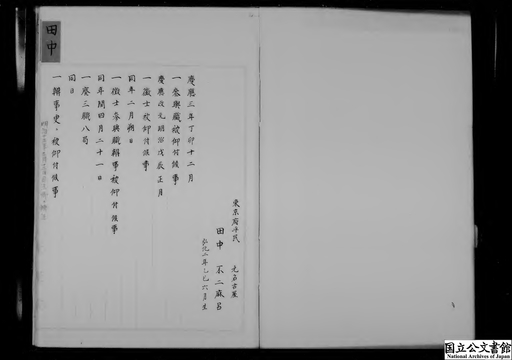 田中
東京府平民 元名古屋
田中 不二麻呂
弘化二年乙巳六月生
慶應三年丁卯十二月
一參與職被仰付候事
慶應改元明治戊辰正月
一徴士被仰付候事
同年二月朔日
一徴士參與職辨事被仰付候事
同年閏四月二十一日
一廢三職八局
同日
一辨事史、被仰付候事
国立公文書館
National Archives of Japan